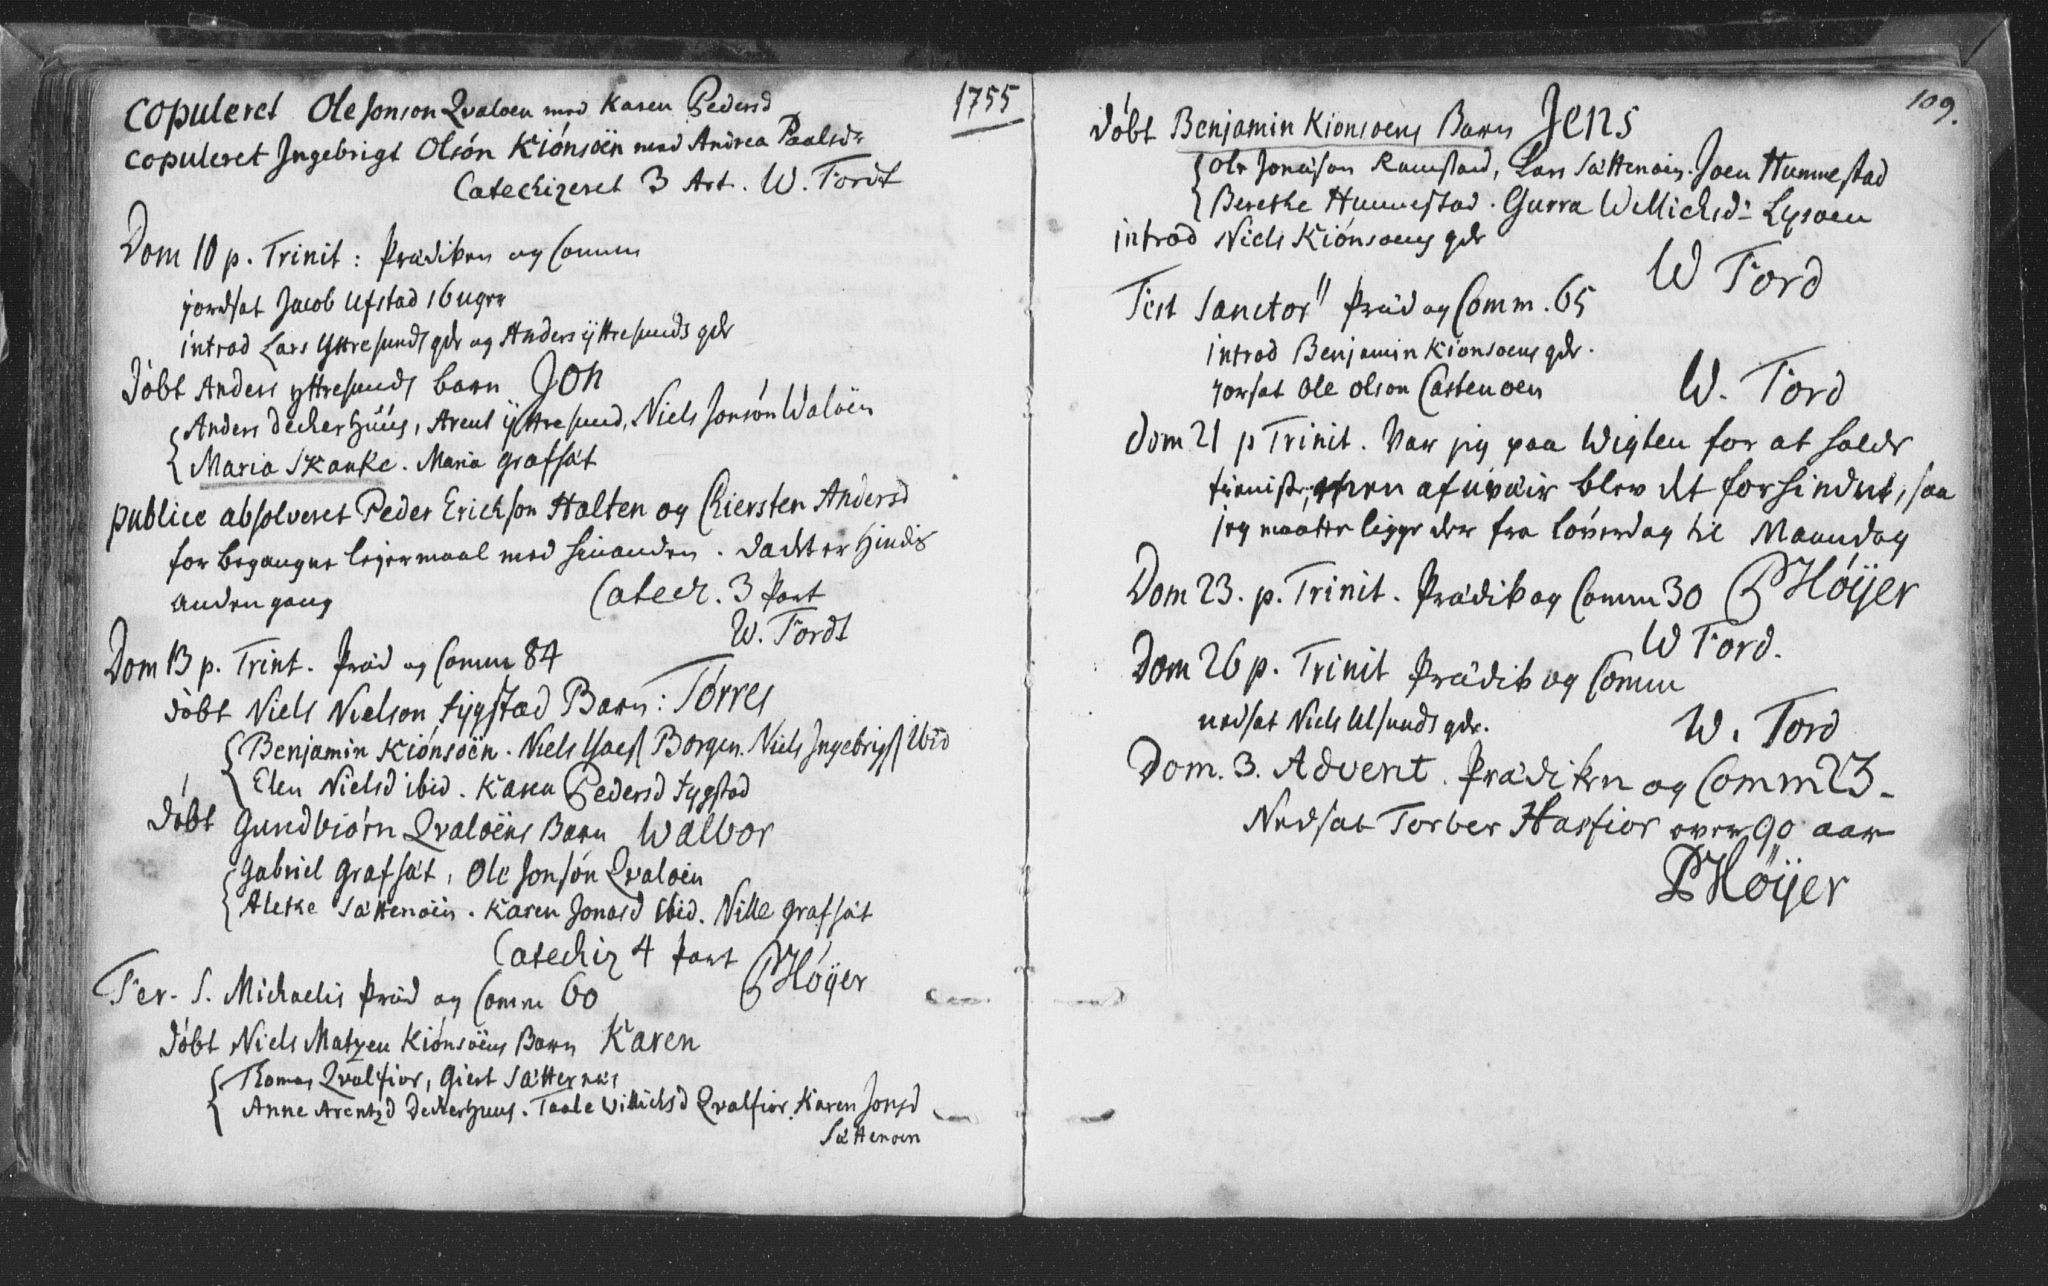 1755
copuleret Ole Jonson Qvaloen med Karen Pedersd
copuleret Ingebrigt Olsón Kiónsöen med Andrea Paalsdr
Catechizeret 3 Art. W. Tordt
Dom 10 p. Trinit: Prædiken og Comm
jordsat Jacob Ufstad 16 uger
introd Lars Yttresunds qdr og Anders ÿttresunds qdr
Dóbt Anders yttresunds barn Jon
Anders Deckerhuus, Arent ÿttresund, Niels Jonsón Walöen
Maria Skanke. Maria grafsæt
publice absolveret Peder Erickson Halten og Chiersten Andersd
for begangne lejermaal med hinanden. da det er hindis
anden gang
Catech. 3 Part
W. Tordt
Dom 13 p. Trint. Præd og Comm 84
dóbt Niels Nielson fygstad Barn: Tórres
Benjamin Kiónsöen. Niels Isaes Borgen. Niels Ingebrigs Ibid
Elen Nielsd ibid. Karen Pedersd fygstad
Dóbt Gundbiórn Qvalöens Barn Walbor
Gabriel grafsæt, Ole Jonsón Qvalöen
Aletke Sættenöen. Karen Jonasd ibid. Nille grafsæt
Catechiz 4 Part
PHóÿer
Fer. S. Michaelis Præd og Comm 60
Dóbt Niels Matzen Kiónsöens Barn Karen
Thomas Qvalfior, Giert Sætternæs
Anne Arentzd Deckerhuus. Taale Willichsd Qvalfior. Karen Jonsd
Sættenoen
109.
Dóbt Benjamin Kionsoens Barn Jens
Ole Jonæson Ramstad, Lars Sættenoen. Joen Hunnestad
Beretke Hunnestad. Gurra Willichsdr Lysoen
introd Niels Kiónsoens qdr
W Tord
Fest Sanctor Præd og Comm. 65
introd Benjamin Kionsoens qdr.
jorsat Ole Olson Castenoen
W. Tord
Dom 21 p Trinit. Var jeg paa Wigten for at holde
tieniste, men af uvæir blev det forhindret, saa
jeg maatte ligge der fra lóverdag til Maandag
PHóÿer
Dom 23. p. Trinit. Prædik og Comm 30
W Tord.
Dom 26 p. Trinit Prædik og Comm
nedsat Niels Ulsunds qdr.
W. Tord
Dom. 3. Advent. Prædiken og Comm 23.
Nedsat Torber Hasfior over 90 aar
PHöÿer